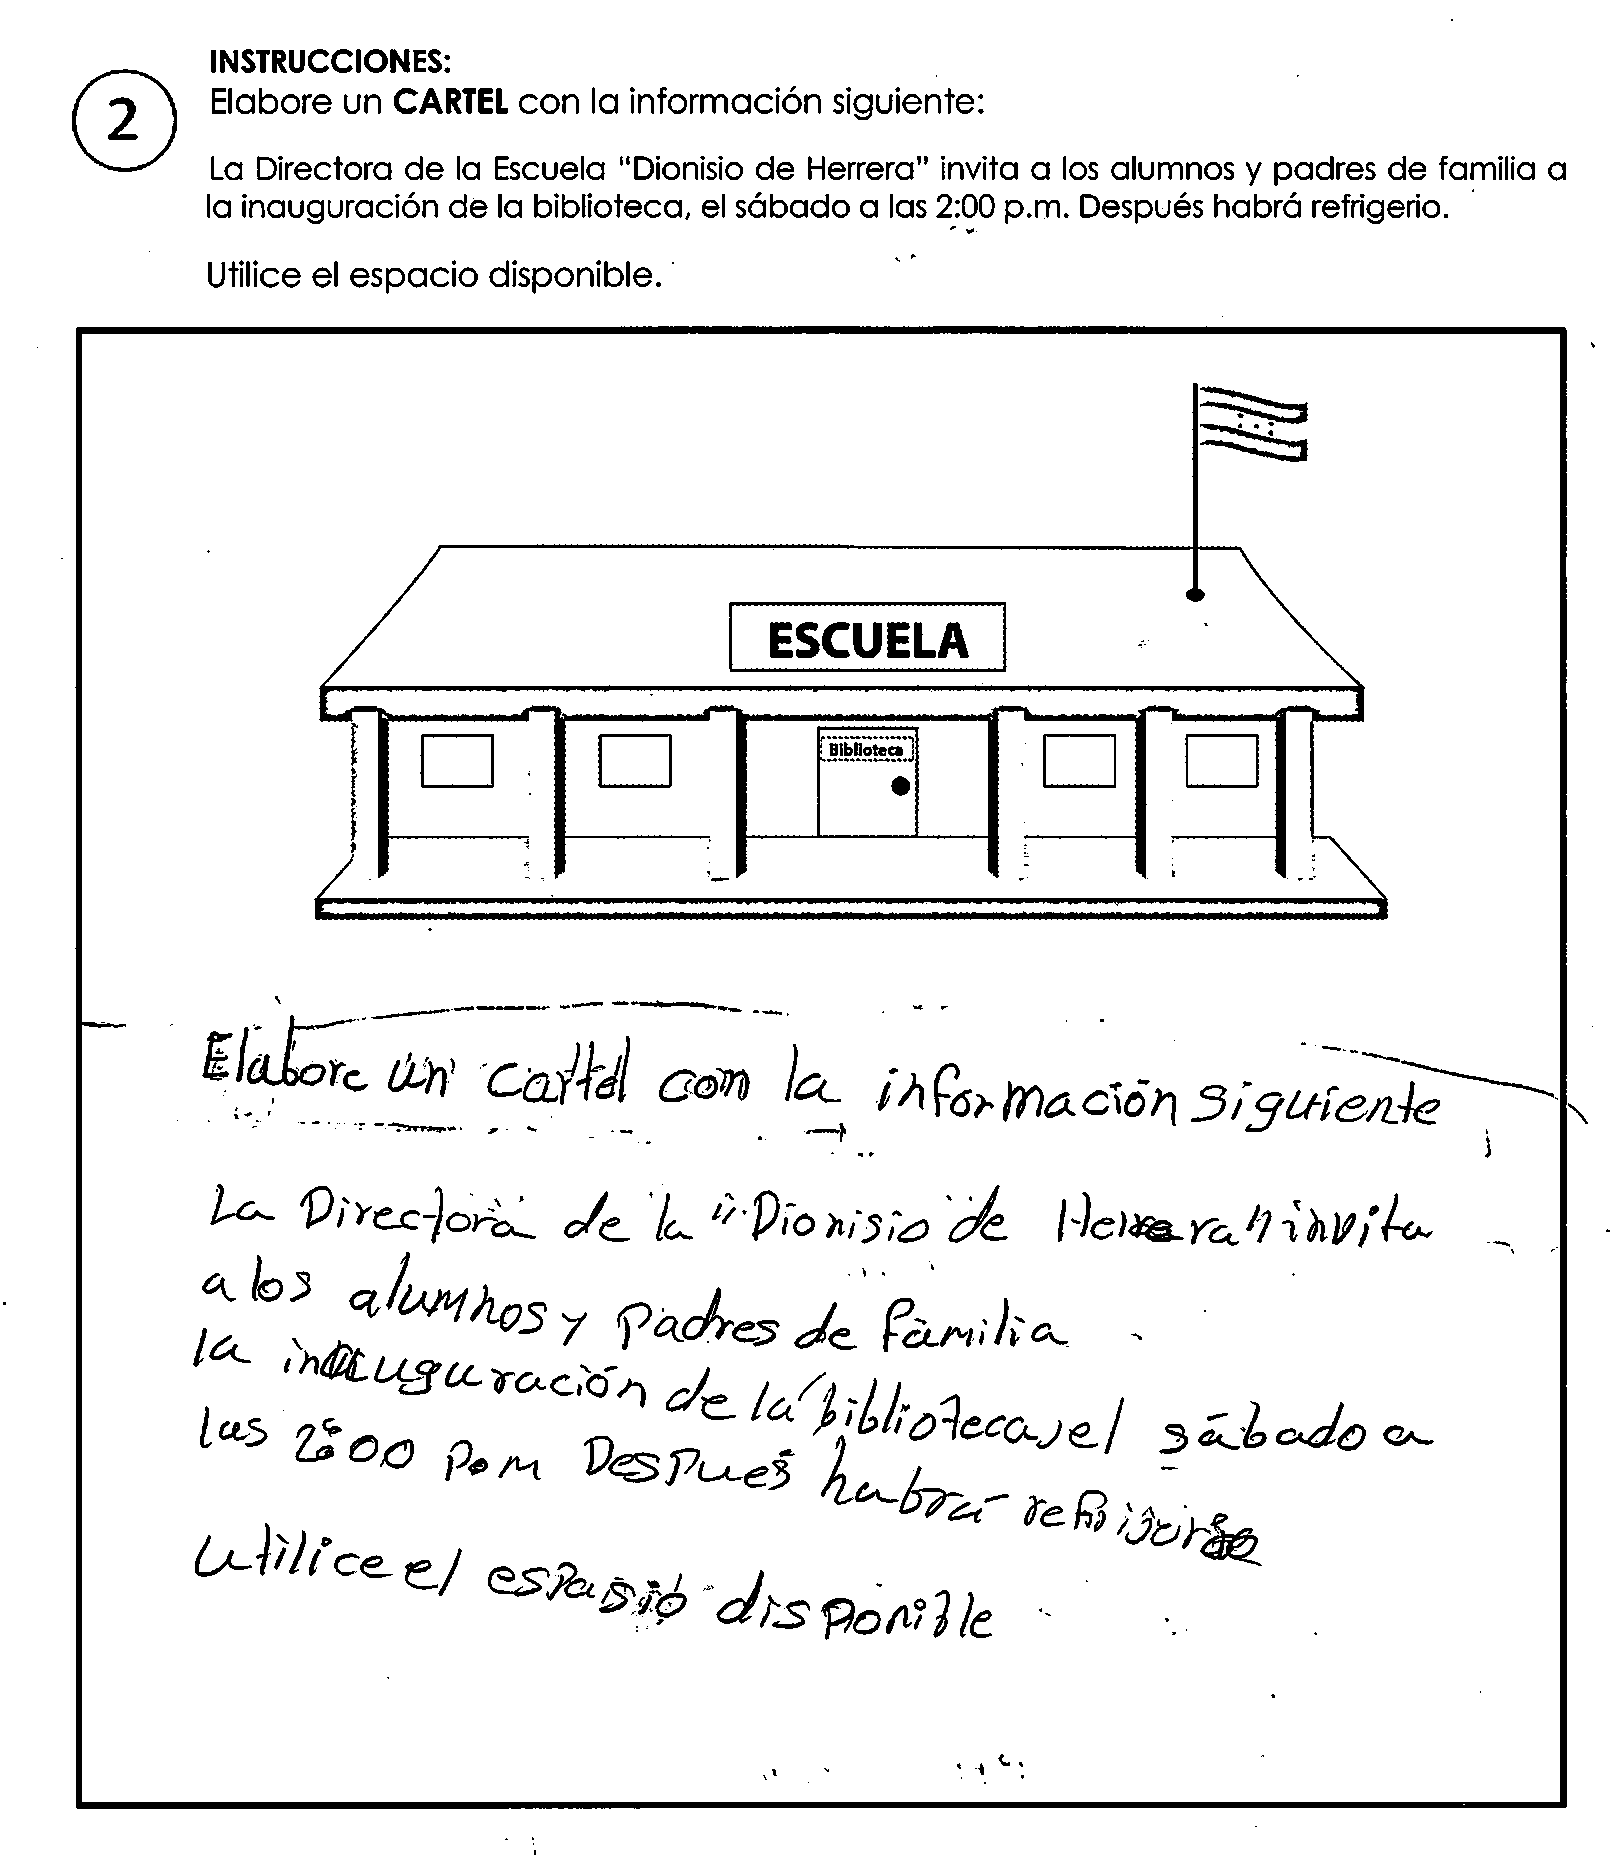 INSTRUCCIONES:
2
Elabore un CARTEL con la información siguiente:
La Directora de la Escuela "Dionisio de Herrera" invita a los alumnos y padres de familia a
la inauguración de la biblioteca, el sábado a las 2:00 p.m. Después habrá refrigerio.
Utilice el espacio disponible.
ESCUELA
Biblioteca
Elabore un cartel con la información siguiente
La Directora de la "Dionisio de Herrera" invita
a los alumnos y padres de familia
la inauguración de la biblioteca, el sábado a
las 2:00 p.m Despues habrá
utilice el espasio disponible